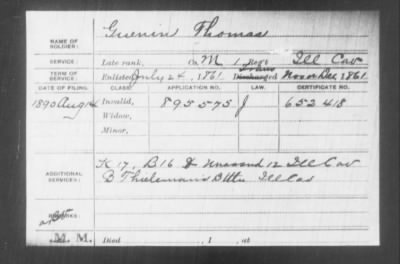 NAME OF SOLDIER: Guerin Thomas
SERVICE: Late rank, Co. M, 1 Reg't Ill Cav
Trans
TERM OF SERVICE: Enlisted July 24, 1861 Discharged Nov or Dec, 1861
DATE OF FILING. CLASS. APPLICATION NO. LAW. CERTIFICATE NO.
1890 Aug 14 Invalid, 895575 J 652418
Widow,
Minor,
K 17, B 16 & Unassnd 12 Ill Cav
ADDITIONAL SERVICES: B Thielemans Ill Cav
REMARKS:
M. M. Died , 1 , at